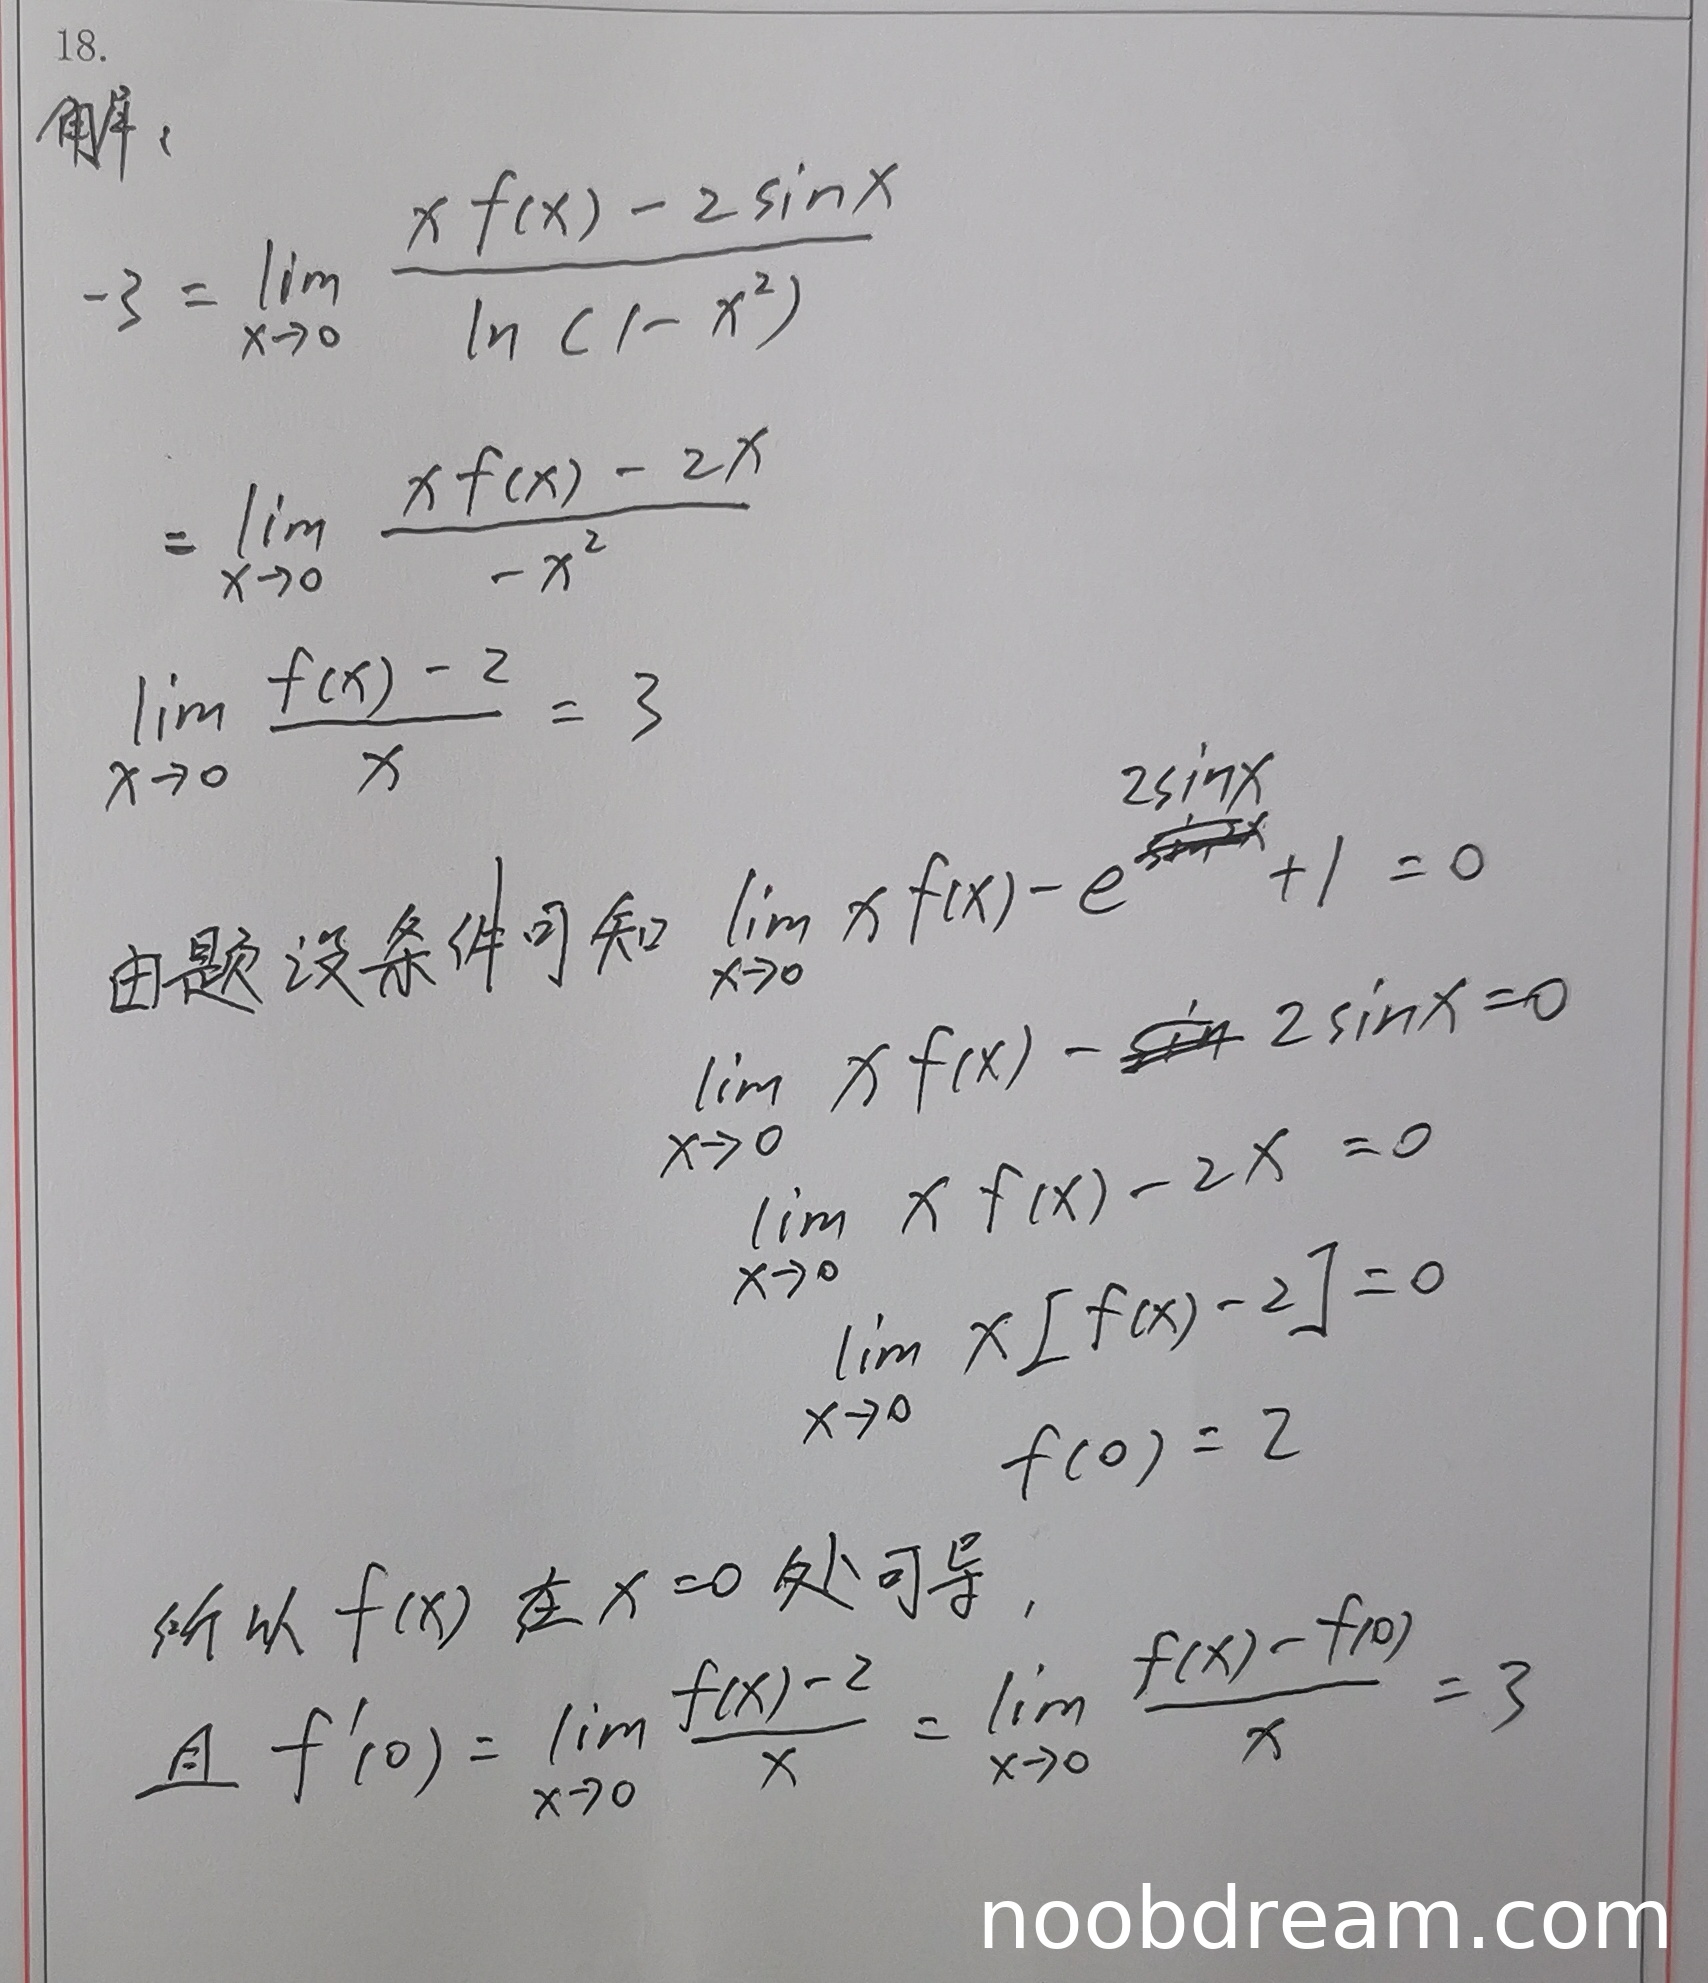 18.
解:
-3 = lim x→0 (x f(x) - 2 sin x) / (ln (1 - x²))
= lim x→0 (x f(x) - 2x) / (-x²)
lim x→0 (f(x) - 2) / x = 3
由题设条件可知 lim x→0 x f(x) - e^(2sinx) + 1 = 0
lim x→0 x f(x) - 2 sin x = 0
lim x→0 x f(x) - 2x = 0
lim x→0 x [f(x) - 2] = 0
f(0) = 2
所以 f(x) 在 x = 0 处可导,
且 f'(0) = lim x→0 (f(x) - 2) / x = lim x→0 (f(x) - f(0)) / x = 3
noobdream.com